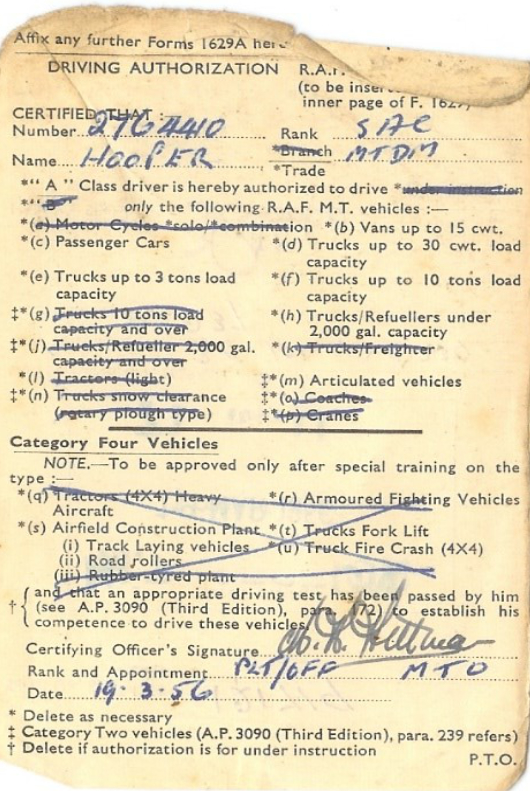 Affix any further Forms 1629A here
DRIVING AUTHORIZATION R.A.F.
(to be inser
inner page of F. 1629)
CERTIFIED THAT :
Number 2764410 Rank SAC
Name HOOPER *Branch MTDM
*Trade
*“ A ” Class driver is hereby authorized to drive *under instruction
*“ B” only the following R.A.F. M.T. vehicles :—
*(a) Motor Cycles *solo/*combination *(b) Vans up to 15 cwt.
*(c) Passenger Cars *(d) Trucks up to 30 cwt. load
capacity
*(e) Trucks up to 3 tons load *(f) Trucks up to 10 tons load
capacity capacity
‡*(g) Trucks 10 tons load *(h) Trucks/Refuellers under
capacity and over 2,000 gal. capacity
‡*(j) Trucks/Refueller 2,000 gal. *(k) Trucks/Freighter
capacity and over
*(l) Tractors (light) ‡*(m) Articulated vehicles
‡*(n) Trucks snow clearance ‡*(o) Coaches
(rotary plough type) ‡*(p) Cranes
Category Four Vehicles
NOTE.—To be approved only after special training on the
type :—
*(q) Tractors (4X4) Heavy *(r) Armoured Fighting Vehicles
Aircraft
*(s) Airfield Construction Plant *(t) Trucks Fork Lift
(i) Track Laying vehicles *(u) Truck Fire Crash (4X4)
(ii) Road rollers
(iii) Rubber-tyred plant
† { and that an appropriate driving test has been passed by him
(see A.P. 3090 (Third Edition), para. 172) to establish his
competence to drive these vehicles
Certifying Officer's Signature
Rank and Appointment PLT/OFF MTO
Date 19·3·56
* Delete as necessary
‡ Category Two vehicles (A.P. 3090 (Third Edition), para. 239 refers)
† Delete if authorization is for under instruction
P.T.O.